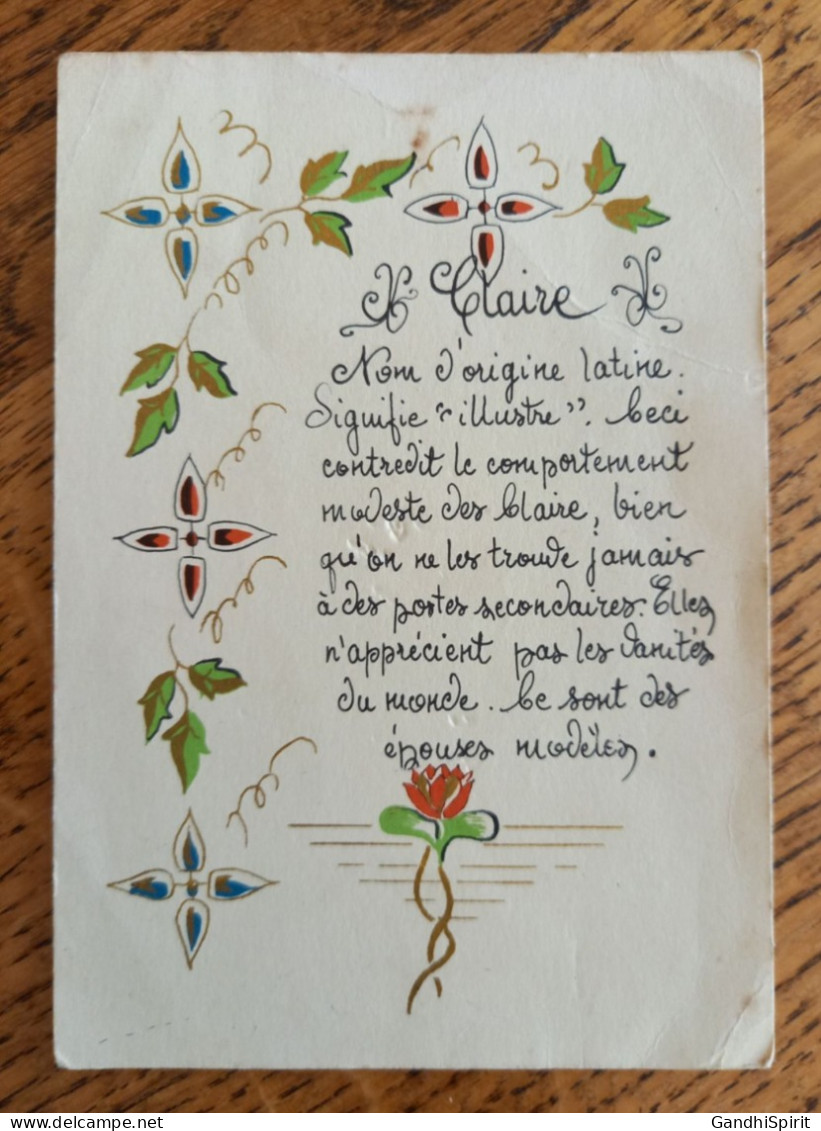 Claire
Nom d'origine latine.
Signifie "illustre". Ceci
contredit le comportement
modeste des Claire, bien
qu'on ne les trouve jamais
à des postes secondaires. Elles
n'apprécient pas les vanités
du monde. Ce sont des
épouses modèles.
GandhiSpirit